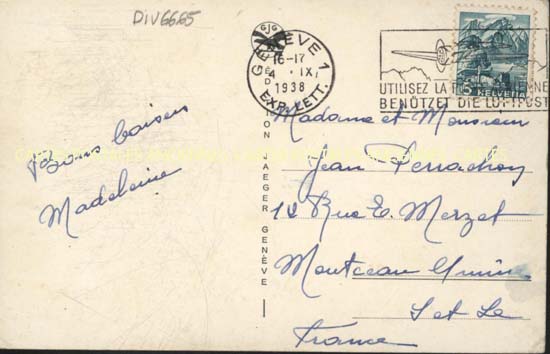 DIV6665
GJG
GENÈVE 1
16-17
4 · IX
1938
EXP. LETT.
UTILISEZ LA
BENÜTZET DIE LUFTPOST
5
HELVETIA
Bons baisers
Madeleine
ON JAEGER GENÈVE
Madame et Monsieur
Jean Perrachon
12 Rue E. Merzet
Montceau Mines
S et Le
France